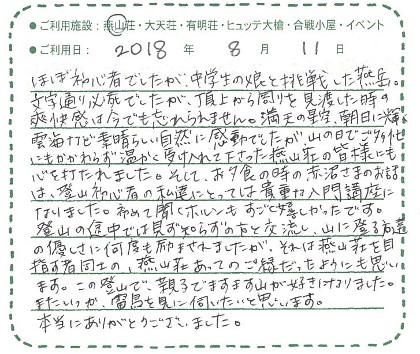 ●ご利用施設：燕山荘・大天荘・有明荘・ヒュッテ大槍・合戦小屋・イベント
●ご利用日：2018年8月11日
ほぼ初心者でしたが、中学生の娘と挑戦した燕岳。
文字通り必死でしたが、頂上から周りを見渡した時の
爽快感は今でも忘れられません。満天の星空、朝日に輝く
雲海など素晴らしい自然に感動でしたが、山の日でご多忙
にもかかわらず温かく受け入れて下さった燕山荘の皆様にも
心を打たれました。そして、お夕食の時の赤沼さまのお話
は、登山初心者の私達にとっては貴重な入門講座に
なりました。初めて聞くホルンもすごく嬉しかったです。
登山の途中では見ず知らずの方と交流し、山に登る方達
の優しさに何度も励まされましたが、それは燕山荘を目
指す者同士の、燕山荘あってのご縁だったようにも思い
ます。この登山で、親子でますます山が好きになりました。
またいつか、雷鳥を見に伺いたいと思います。
本当にありがとうございました。